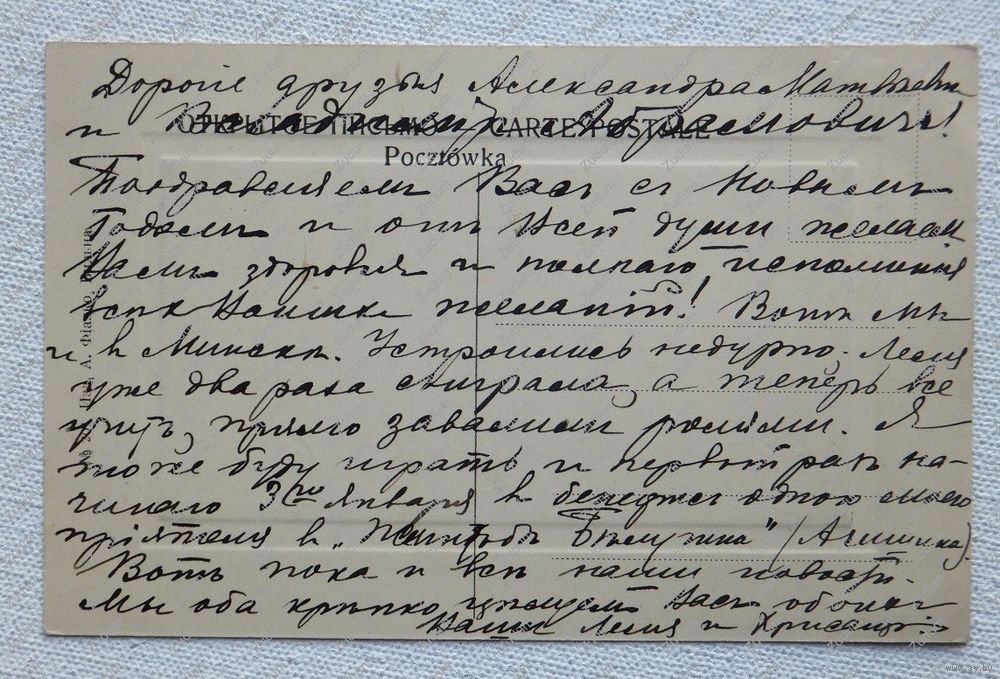 Дорогіе друзья Александра Матвѣевна
и Владимiръ Абрамовичъ!
ОТКРЫТОЕ ПИСЬМО CARTE POSTALE
Pocztówka
Поздравляемъ Васъ съ Новымъ
Годомъ и отъ всей души желаемъ
Вамъ здоровья и полнаго исполненія
всѣхъ Вашихъ желаній! Вотъ мы
и въ Минскѣ. Устроились недурно. Леля
уже два раза сыграла, а теперь все
учитъ, прямо завалили ролями. Я
тоже буду играть и первый разъ на-
чинаю 3го января въ бенефисъ одного моего
пріятеля въ „ Бѣлугина" (Агишина).
Вотъ пока и всѣ наши новости.
Мы оба крѣпко цѣлуемъ Васъ обоихъ
Ваши Леля и
www.ay.by